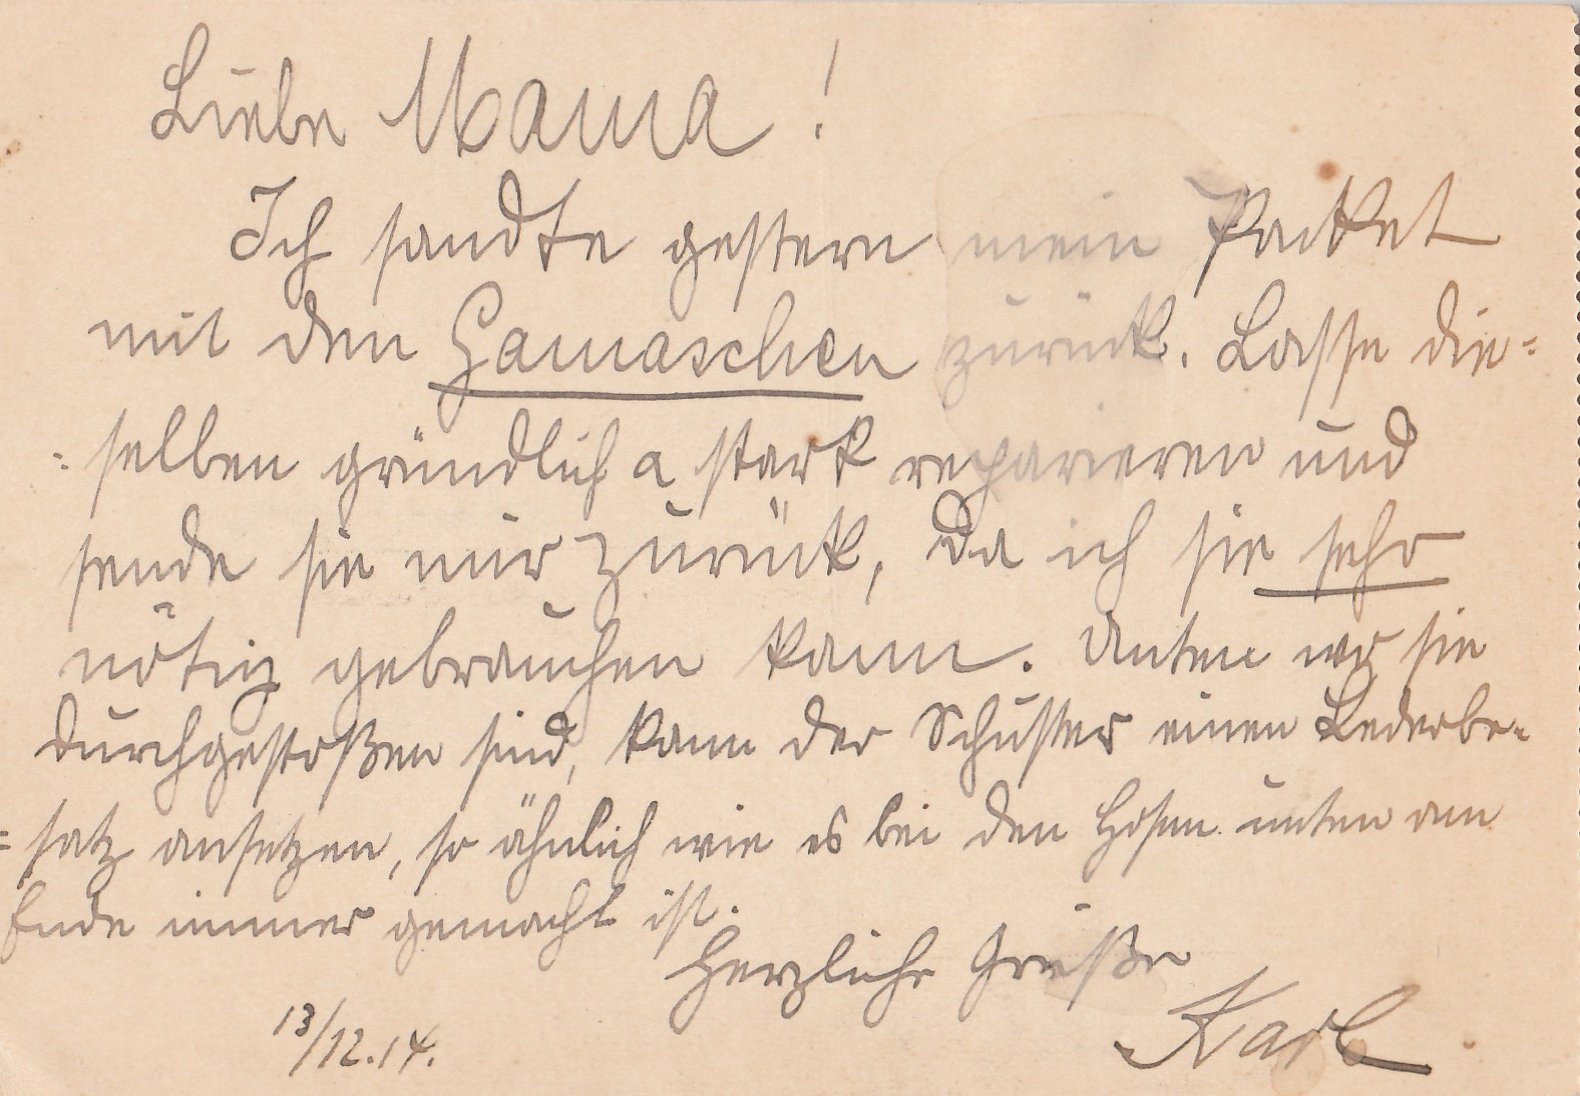 Liebe Mama!
Ich sandte gestern mein Packet
mit den Gamaschen zurück. Lasse die=
=selben gründlich u stark reparieren und
sende sie mir zurück, da ich sie sehr
nötig gebrauchen kann. Unten wo sie
durchgestoßen sind, kann der Schuster einen Lederbe=
=satz ansetzen, so ähnlich wie es bei den Hosen unten am
Ende immer gemacht ist.
Herzliche Grüße
Karl
13/12.14.